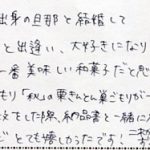 出身の旦那と結婚して
と出逢い、大好きになり
一番美味しい和菓子だと思
もり「秋」の栗きんとん巣ごもりが一
文をした際、納品書と一緒に
とても嬉しかったです!